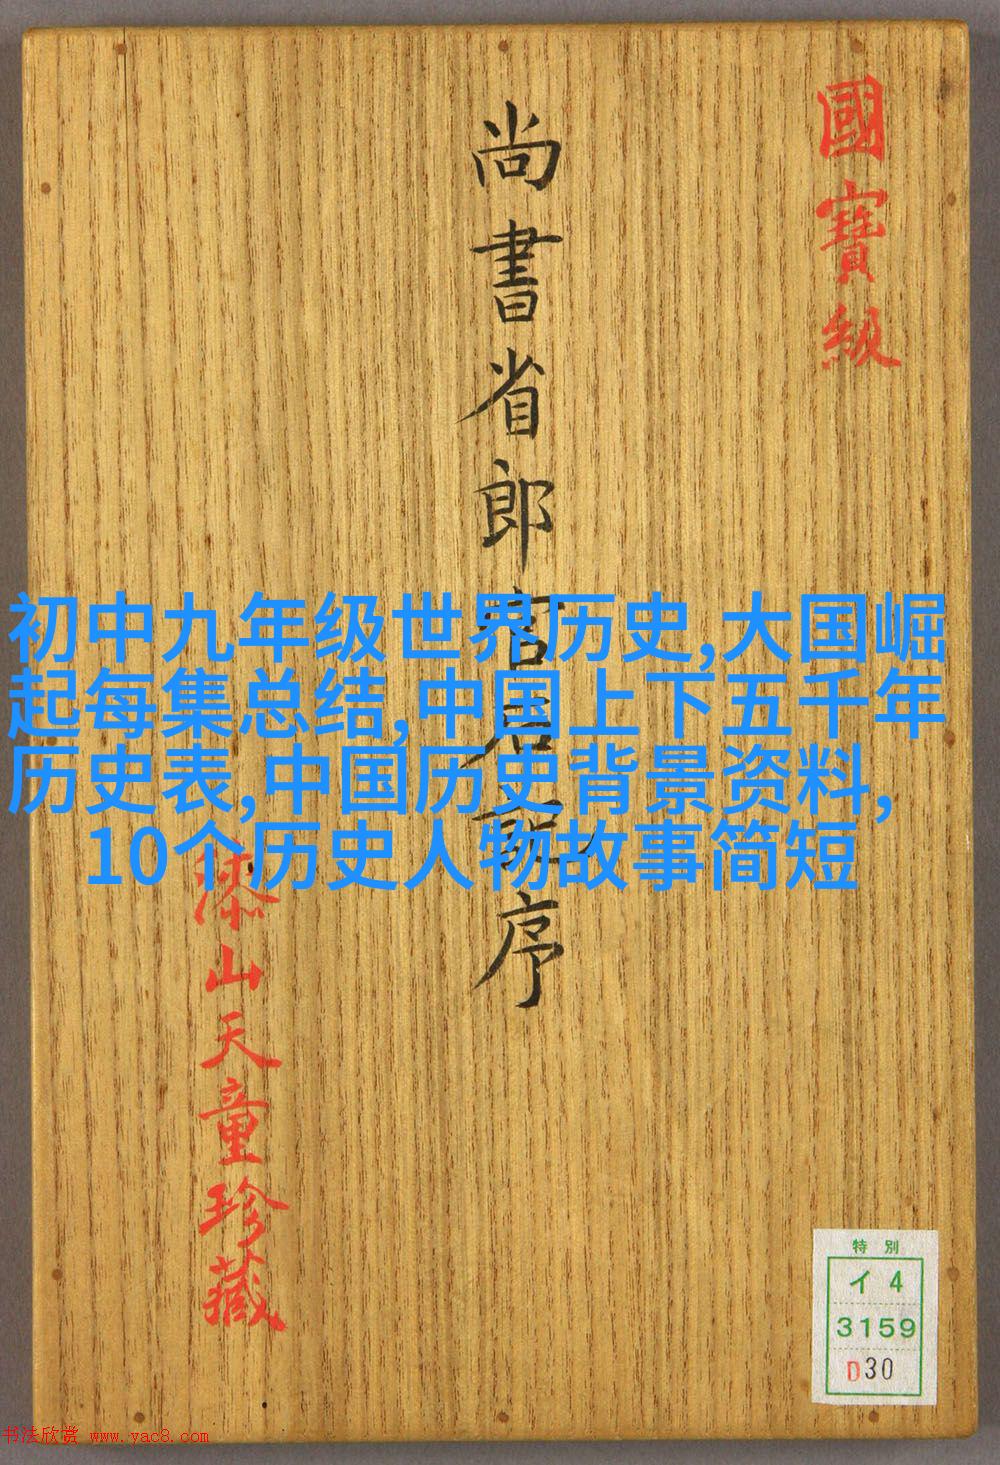 國寶級
尚書省郎官石記序
漆山天童珍藏
初中九年级世界历史,大国崛
起每集总结,中国上下五千年
历史表,中国历史背景资料,
10个历史人物故事简短
特別
イ4
3159
D30
书法欣赏 www.yac8.com